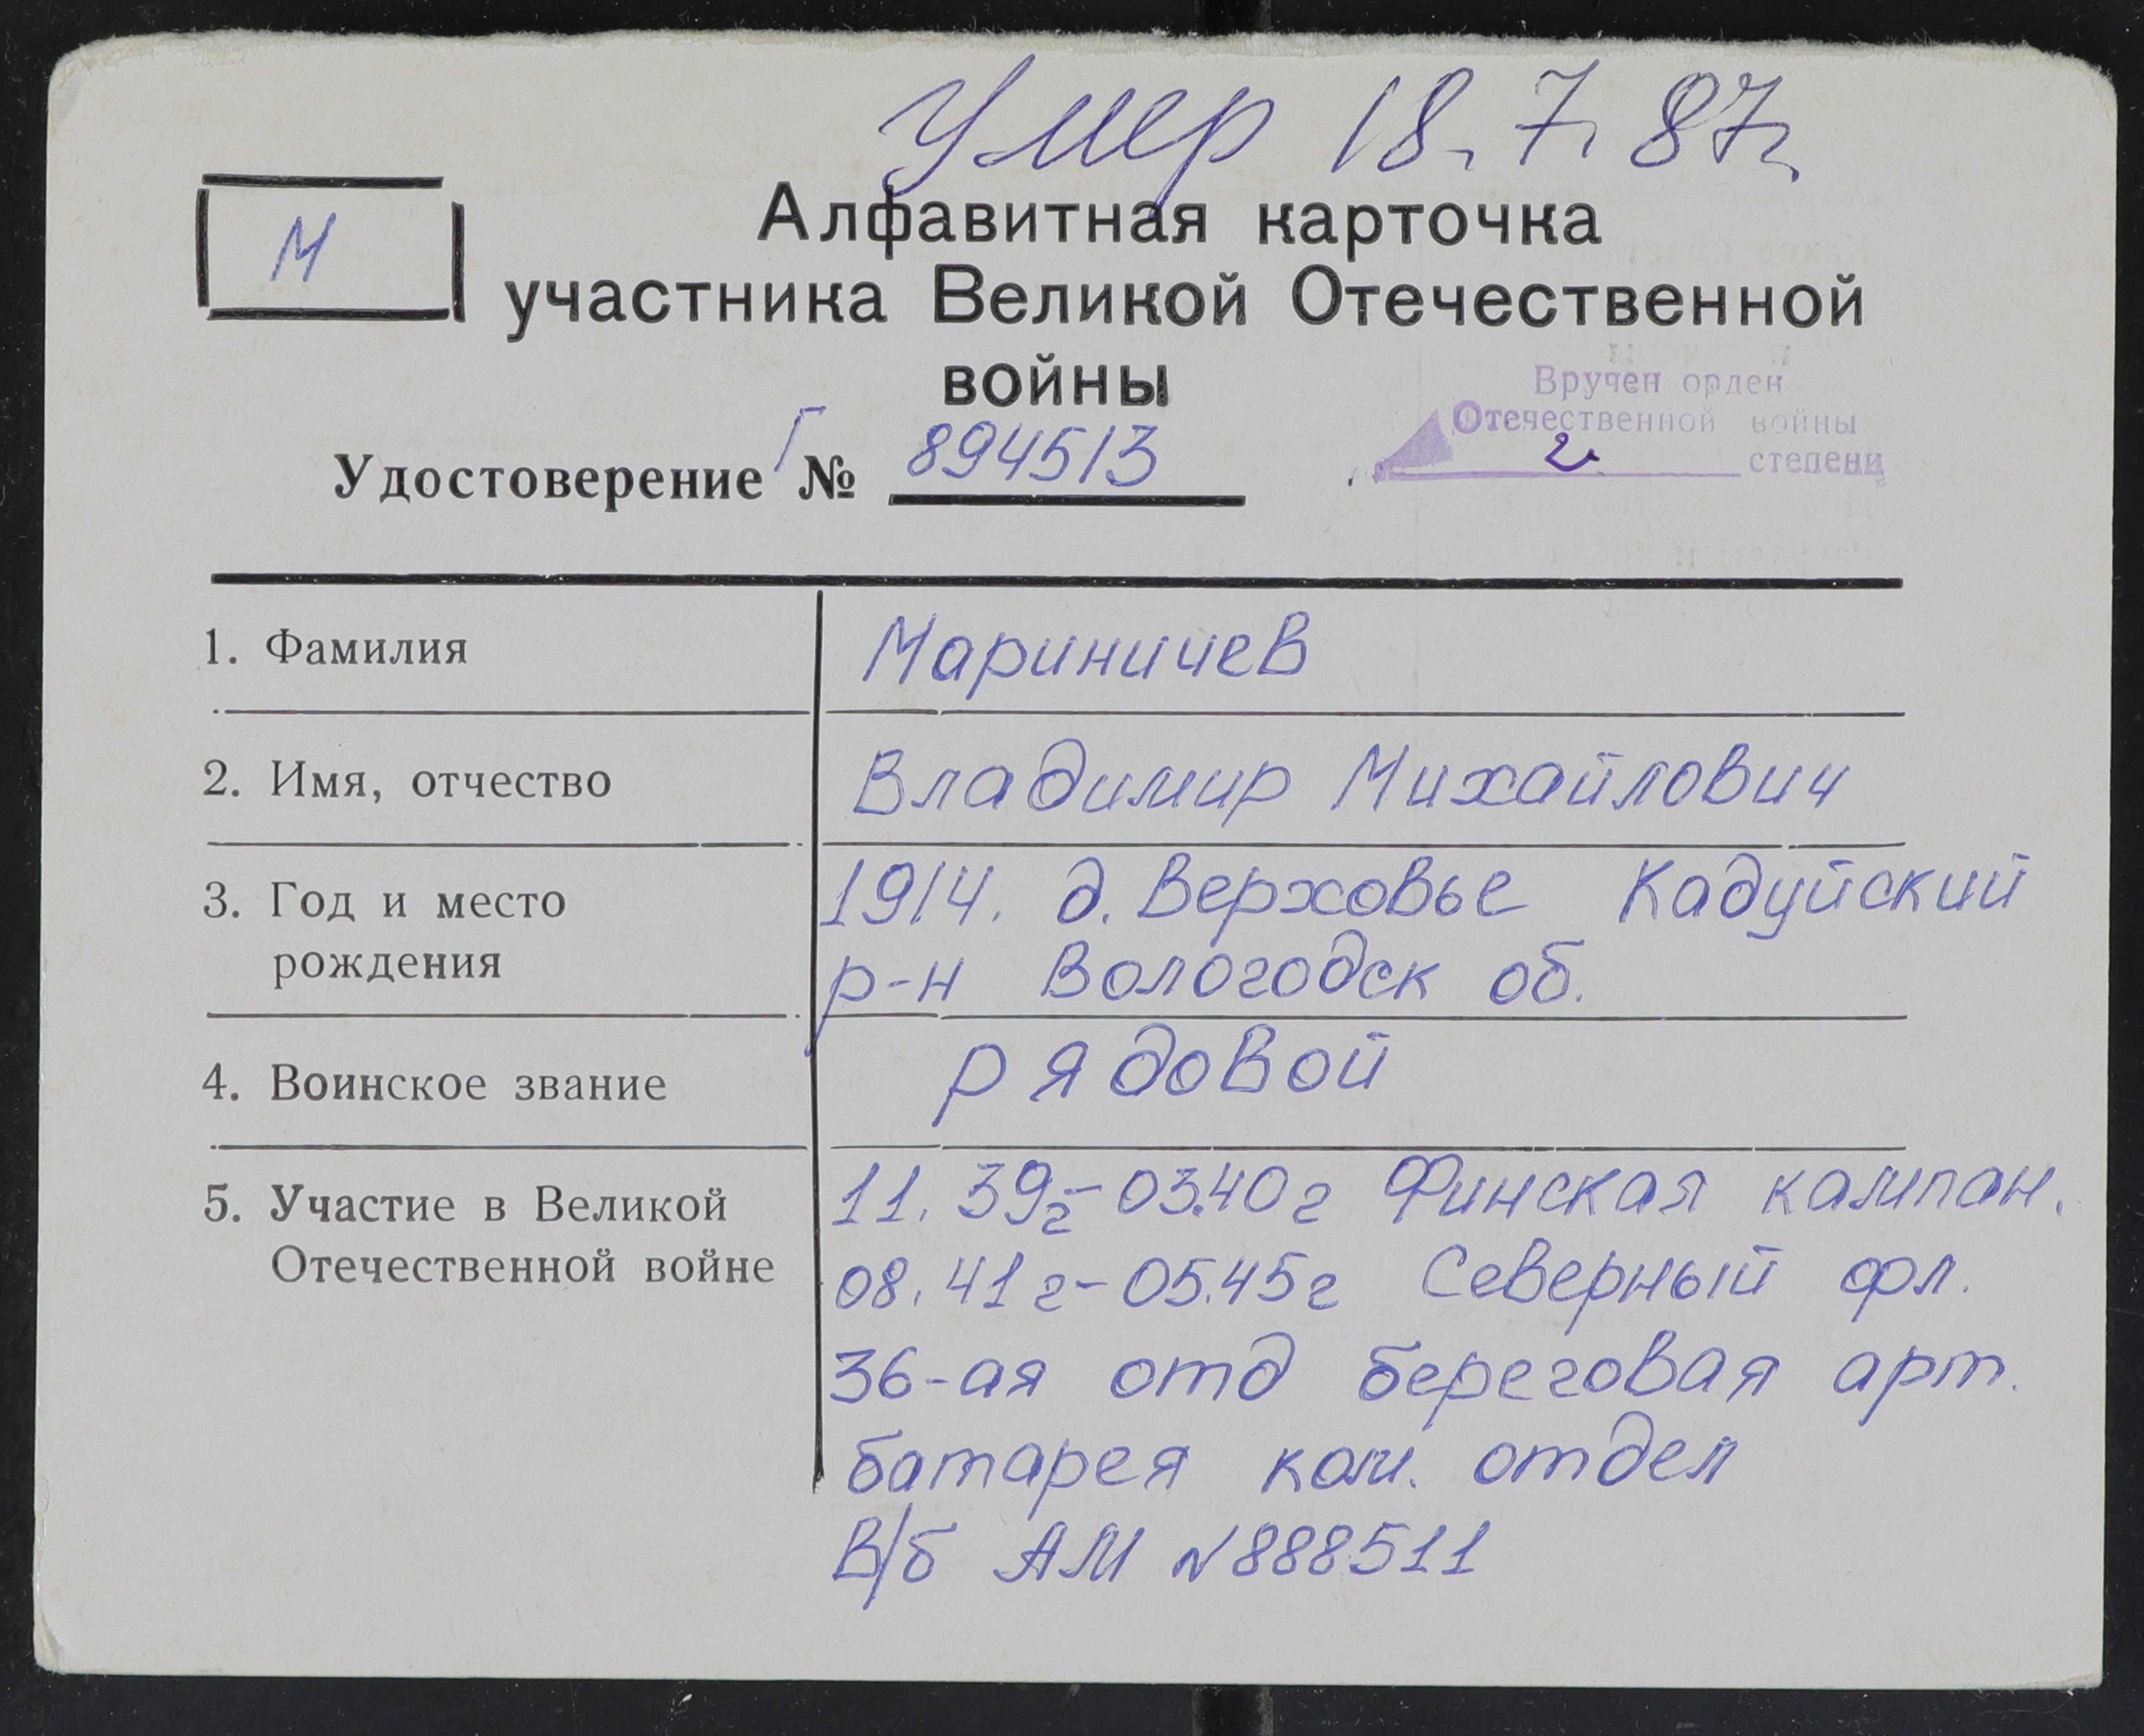 Умер 18.7.87г.
М
Алфавитная карточка
участника Великой Отечественной
войны
Вручен орден
Отечественной войны
2 степени
Удостоверение Г № 894513
1. Фамилия Мариничев
2. Имя, отчество Владимир Михайлович
3. Год и место 1914. д. Верховье Кадуйский
рождения р-н Вологодск об.
4. Воинское звание рядовой
5. Участие в Великой 11.39г-03.40г Финская кампан.
Отечественной войне 08.41г-05.45г Северный фл.
36-ая отд береговая арт.
батарея ком. отдел
В/б АМ №888511